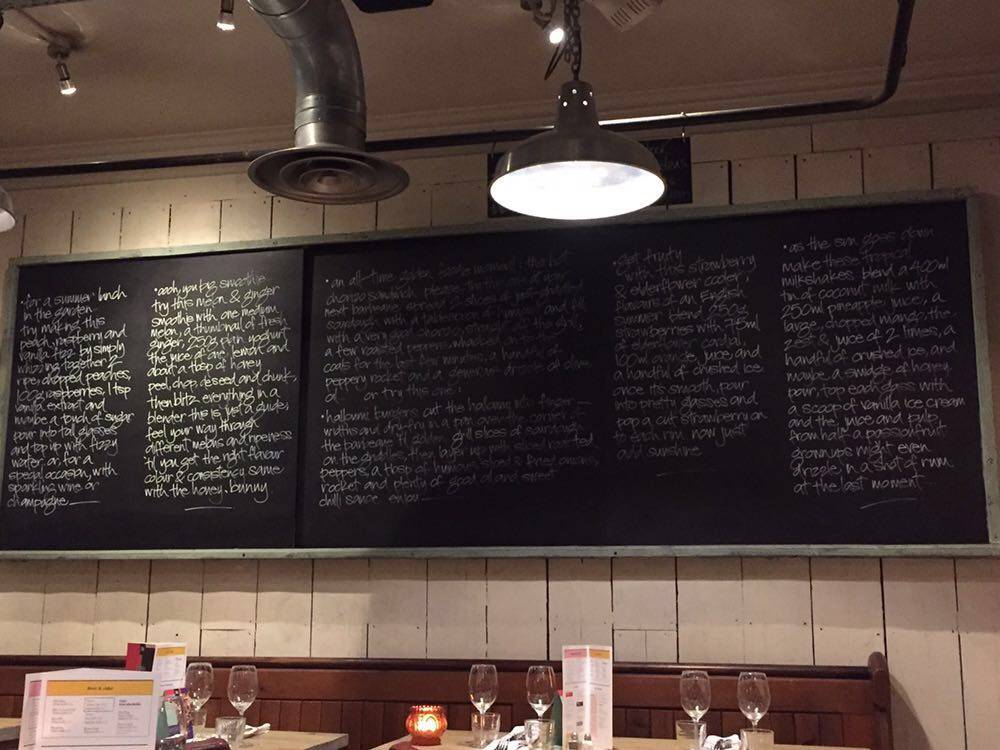 • for a summer lunch
in the garden
try making this
peach, raspberry and
vanilla fizz. by simply
whizzing together 2
ripe, chopped peaches,
100g raspberries, 1 tsp
vanilla extract and
maybe a pinch of sugar
pour into tall glasses
and top up with fizzy
water or, for a
special occasion, with
sparkling wine or
champagne
• oooh, you big smoothie
try this melon & ginger
smoothie with one medium
melon, a thumbnail of fresh
ginger, 250g plain yoghurt
the juice of one lemon and
about a tbsp of honey
peel, chop, deseed and chunk,
then blitz everything in a
blender this is just a guide,
feel your way through
different melons and ripeness
til you get the right flavour
colour & consistency same
with the honey, bunny
• an all-time golden foodie moment: the hot
chorizo sandwich. please
next barbeque
sourdough with a
with a very good chorizo,
a few roasted peppers, whacked over the
coals for the last few minutes, a handful of
peppery rocket and a generous drizzle of olive
oil or try this one:
• halloumi burgers cut the halloumi into finger
widths and dry-fry in a pan and or
the barbeque til golden. grill slices of sourdough
on the griddles, then layer up with roasted
peppers, a tbsp of humous, sliced & fried onions,
rocket and plenty of good oil and sweet
chilli sauce enjoy
• get fruity
with this strawberry
& elderflower cooler
flavours of an English
summer blend 250g
strawberries with 75ml
of elderflower cordial,
100ml orange juice and
a handful of crushed ice
once it's smooth, pour
into pretty glasses and
pop a cut strawberry on
to each rim. now just
add sunshine
• as the sun goes down
make these tropical
milkshakes. blend a 400ml
tin of coconut milk with
250ml pineapple juice, a
large, chopped mango, the
zest & juice of 2 limes, a
handful of crushed ice, and
maybe a smidge of honey.
pour, top each glass with
a scoop of vanilla ice cream
and the juice and pulp
from half a passionfruit
grownups might even
drizzle in a shot of rum
at the last moment